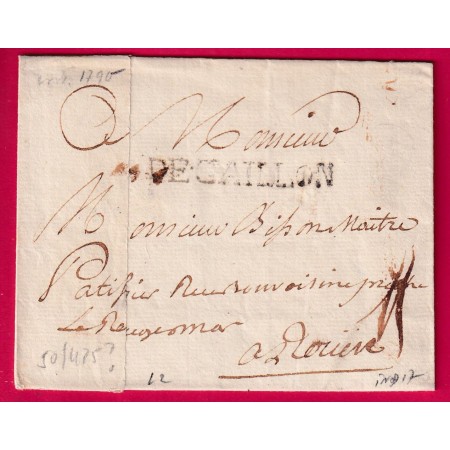 1790
A Monsieur
DE GAILLON
Monsieur Bisson Maitre
Patissier Rue Beauvoisine proche
Le Rougemar
a Rouen
50/475?
L2
IND 17